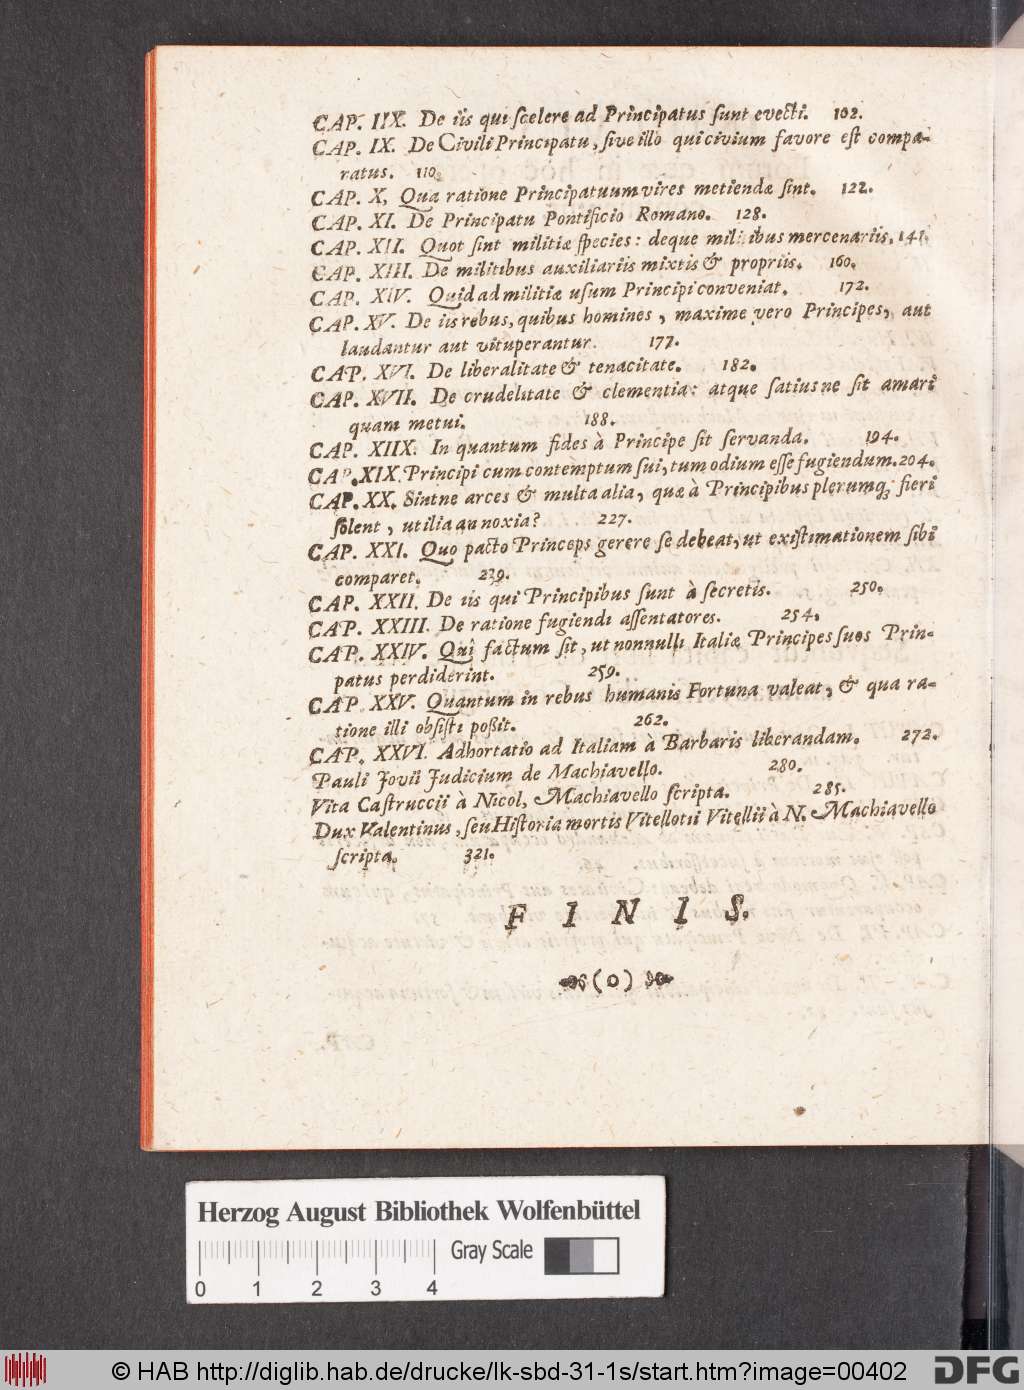 CAP. IIX. De iis qui scelere ad Principatus sunt evecti. 102.
CAP. IX. De Civili Principatu, sive illo qui civium favore est compa-
ratus. 110.
CAP. X. Qua ratione Principatuum vires metiendæ sint. 122.
CAP. XI. De Principatu Pontificio Romano. 128.
CAP. XII. Quot sint militiæ species: deque militibus mercenariis. 141.
CAP. XIII. De militibus auxiliariis mixtis & propriis. 160.
CAP. XIV. Quid ad militiæ usum Principi conveniat. 172.
CAP. XV. De iis rebus, quibus homines, maxime vero Principes, aut
laudantur aut vituperantur. 177.
CAP. XVI. De liberalitate & tenacitate. 182.
CAP. XVII. De crudelitate & clementia: atque satiusne sit amari
quam metui. 188.
CAP. XIIX. In quantum fides à Principe sit servanda. 194.
CAP. XIX. Principi cum contemptum sui, tum odium esse fugiendum. 204.
CAP. XX. Sintne arces & multa alia, quæ à Principibus plerumq; fieri
solent, utilia an noxia? 227.
CAP. XXI. Quo pacto Princeps gerere se debeat, ut existimationem sibi
comparet. 239.
CAP. XXII. De iis qui Principibus sunt à secretis. 250.
CAP. XXIII. De ratione fugiendi assentatores. 254.
CAP. XXIV. Quî factum sit, ut nonnulli Italiæ Principes suos Prin-
patus perdiderint. 259.
CAP. XXV. Quantum in rebus humanis Fortuna valeat, & qua ra-
tione illi obsisti poßit. 262.
CAP. XXVI. Adhortatio ad Italiam à Barbaris liberandam. 272.
Pauli Jovii Judicium de Machiavello. 280.
Vita Castruccii à Nicol, Machiavello scripta. 285.
Dux Valentinus, seu Historia mortis Vitellotii Vitellii à N. Machiavello
scripta. 321.
F I N I S.
(o)
Herzog August Bibliothek Wolfenbüttel
Gray Scale
0 1 2 3 4
© HAB http://diglib.hab.de/drucke/lk-sbd-31-1s/start.htm?image=00402
DFG